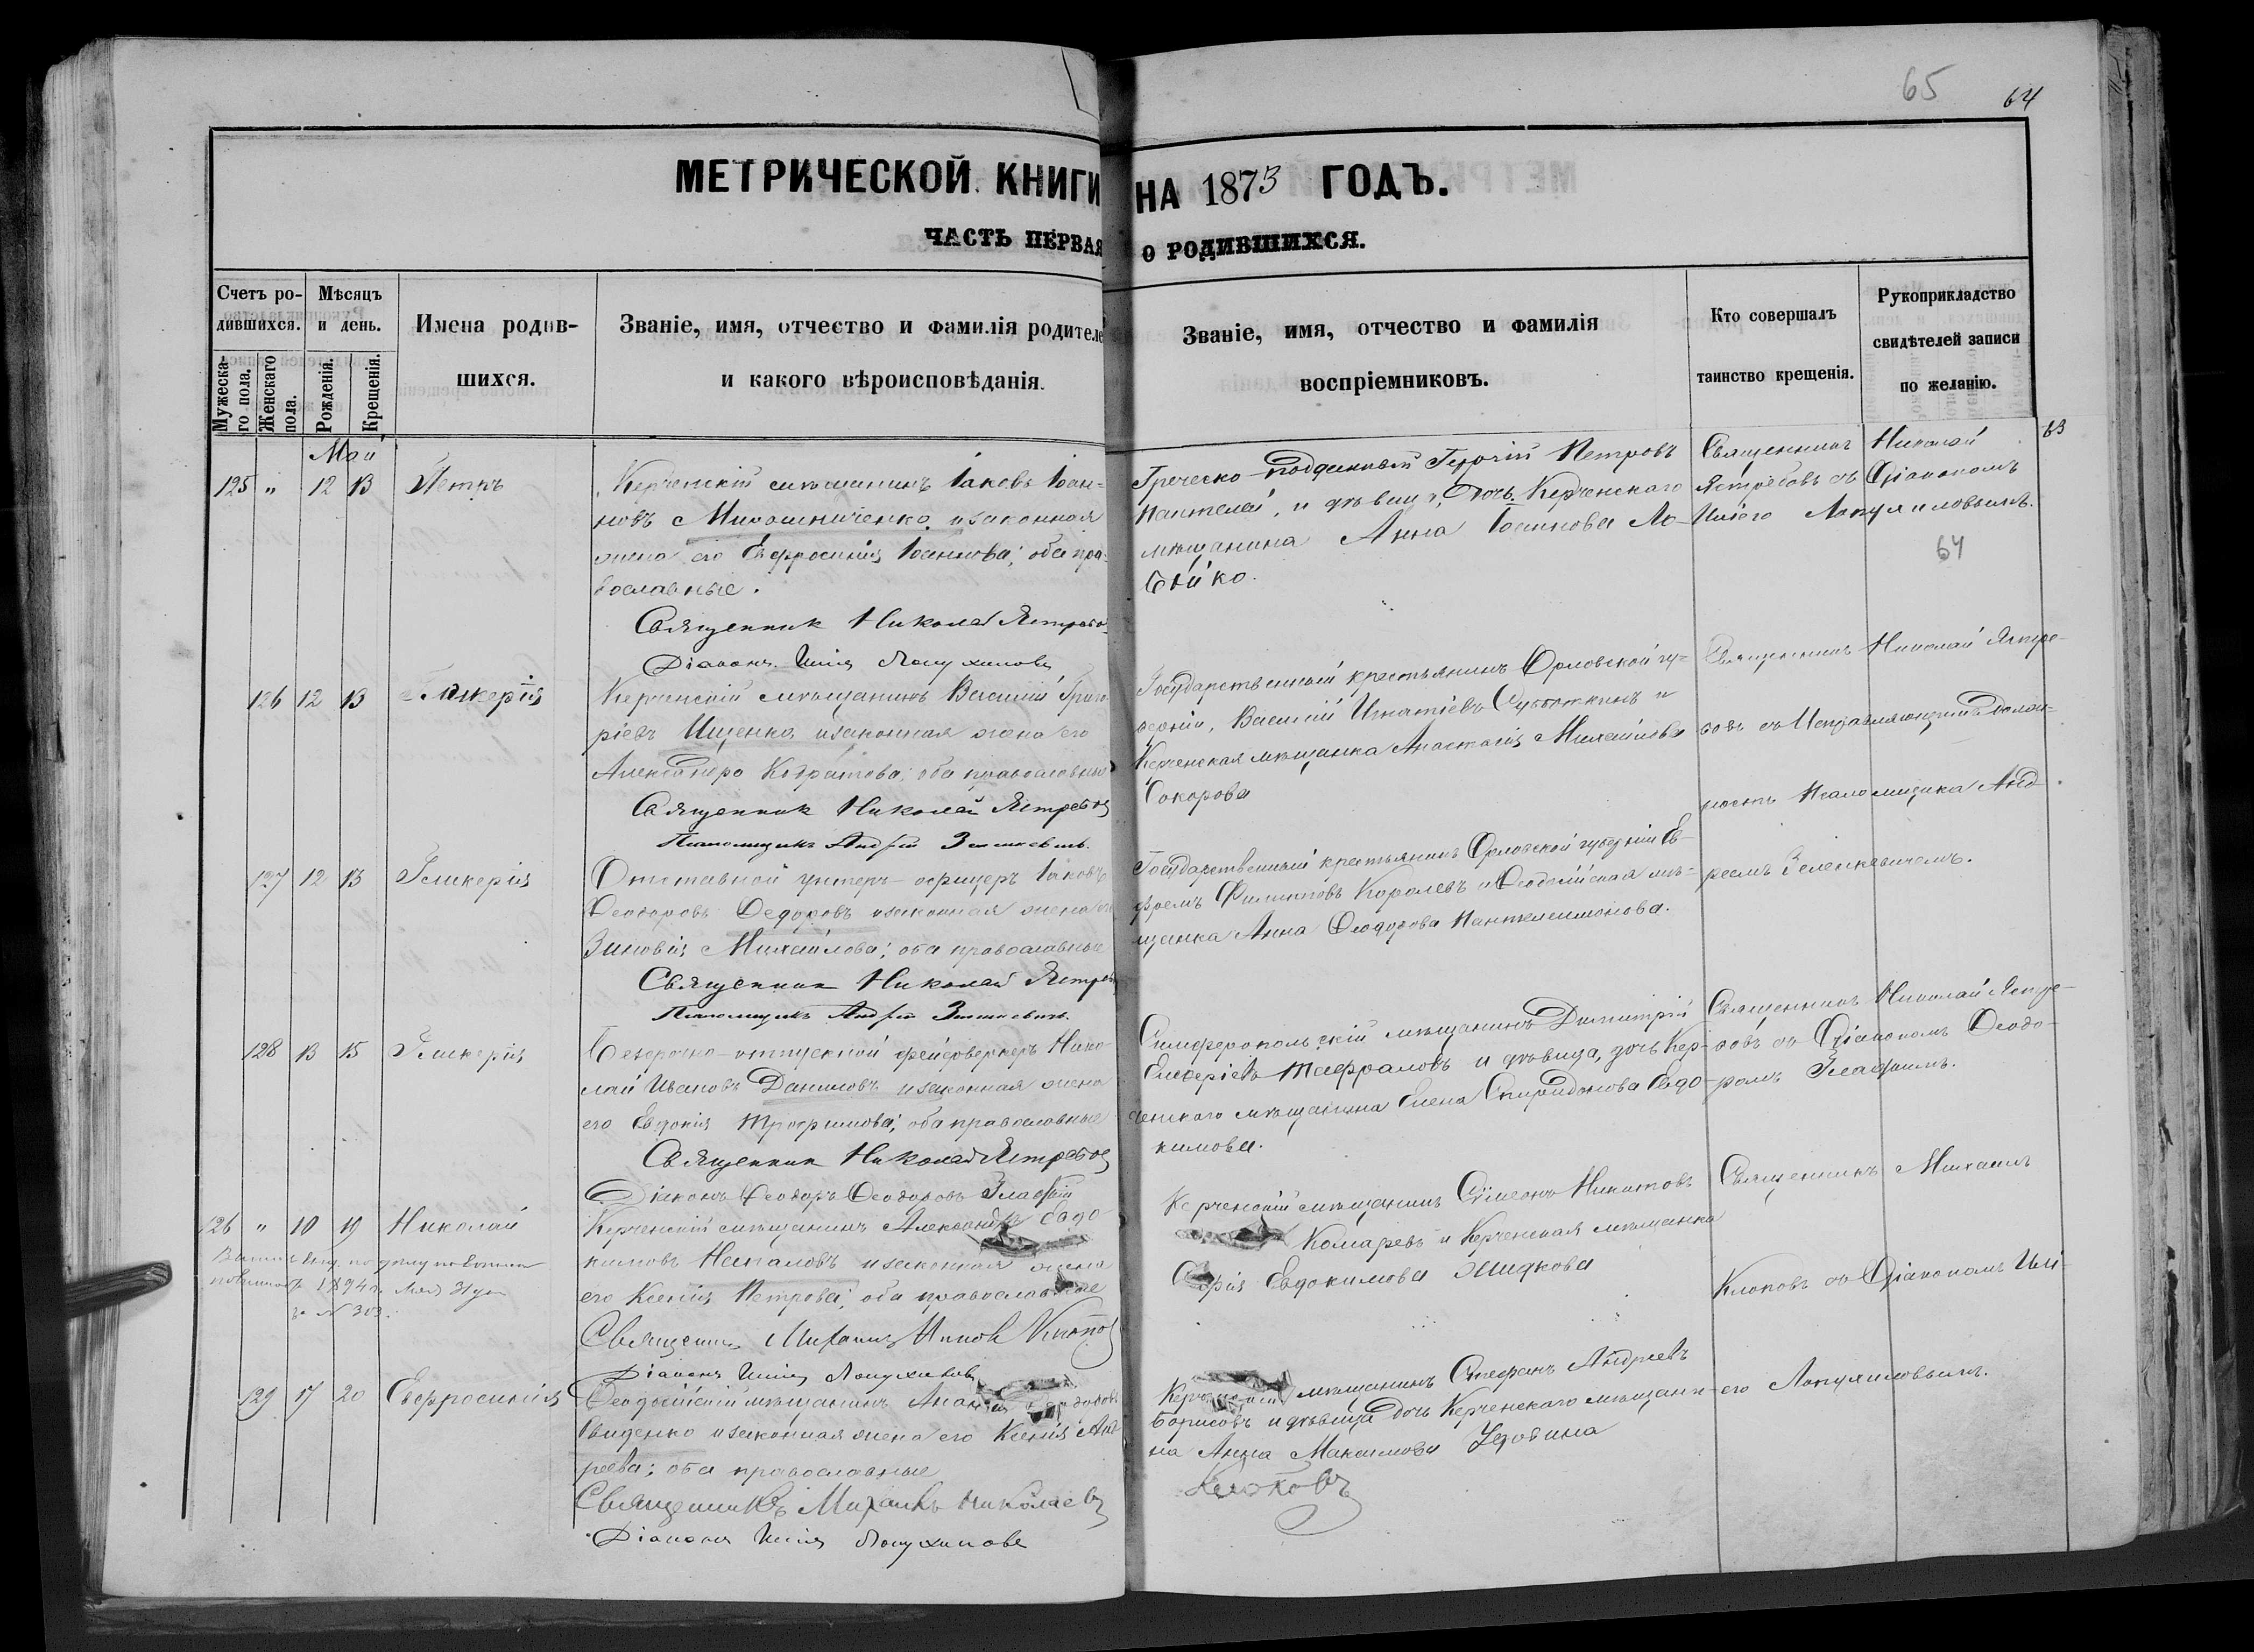 65
64
МЕТРИЧЕСКОЙ КНИГИ НА 1873 ГОДЪ.
ЧАСТЬ ПЕРВАЯ О РОДИВШИХСЯ.
Счетъ родившихся.
Мужескаго пола.
Женскаго пола.
Мѣсяцъ и день.
Рожденія.
Крещенія.
Имена родившихся.
Званіе, имя, отчество и фамилія родителе
и какого вѣроисповѣданія.
Званіе, имя, отчество и фамилія
воспріемниковъ.
Кто совершалъ
таинство крещенія.
Рукоприкладство
свидѣтелей записи
по желанію.
63
Май
125 " 12 13 Петръ
Керченскій мѣщанинъ Іаковъ Іоан-
новъ Мирошниченко и законная
жена его Евфросинія Іоаннова; оба пра-
вославные.
Священник Николай Ястребо
Діаконъ Илія Лопухиновъ
Греческо-подданный Георгій Петровъ
Пантелей, и дѣвица, дочь Керченскаго
мѣщанина Анна Іоаннова Ло-
бойко.
Священникъ Николай
Ястребовъ съ Діакономъ
Иліею Лопухиновымъ.
64
126 12 13 Гликерія
Керченскій мѣщанинъ Василій Григо
ріевъ Ищенко и законная жена его
Александра Кодратова; оба православные
Священник Николай Ястребов
Псаломщикъ Андрей Зеленкевичъ.
Государственный крестьянинъ Орловской гу-
берніи, Василій Игнатіевъ Субботкинъ и
Керченская мѣщанка Анастасія Михайлова
Сокорова
Священникъ Николай Ястре-
бовъ съ Исправляющимъ должн-
ность Псаломщика Анд
127 12 13 Гликерія
Отставной унтеръ-офицеръ Іаковъ
Ѳеодоровъ Ѳедоровъ и законная жена
Зиновія Михайлова; оба православные
Священник Николай Ястреб
Псаломщикъ Андрей Зеленкевичъ.
Государственный крестьянинъ Орловской губерніи Ев-
фремъ Филипповъ Королевъ и Ѳеодосійская мѣ-
щанка Анна Ѳеодорова Пантелеимонова.
реемъ Зеленкевичемъ.
128 13 15 Гликерія
Безсрочно-отпускной фейерверкеръ Нико-
лай Ивановъ Даниловъ и законная жена
его Евдокія Трофимова; оба православные
Священник Николай Ястребов
Діаконъ Ѳеодоръ Ѳеодоровъ
Симферопольскій мѣщанинъ Димитрій
Елевѳеріевъ и дѣвица, дочь Кер-
ченскаго мѣщанина Елена Спиридонова Евдо-
кимова.
Священникъ Николай Ястре-
бовъ съ Діакономъ Ѳеодо-
ромъ
126 " 10 19 Николай
1894 г. 31 дня
за N 303.
Керченскій мѣщанинъ Александръ Евдо
кимовъ и законная жена
его Ксенія Петрова; оба православные
Священникъ Михаилъ Клопов
Діаконъ Илія Лопухиновъ
Керченскій мѣщанинъ Сѵмеонъ Никитовъ
Комаревъ и Керченская мѣщанка
Евдокимова Жидкова
Священникъ Михаилъ
Клоповъ съ Діакономъ Илі-
129 17 20 Евфросинія
Ѳеодосійскій мѣщанинъ
и законная жена его Ксенія Анд
реева; оба православные
Священникъ Михаилъ Николаев
Діаконъ Илія Лопухиновъ
мѣщанинъ Стефанъ Андреевъ
Борисовъ и дѣвица дочь Керченскаго мѣщани-
на Анна Максимова Удовина
Клоповъ
его Лопухиновымъ.